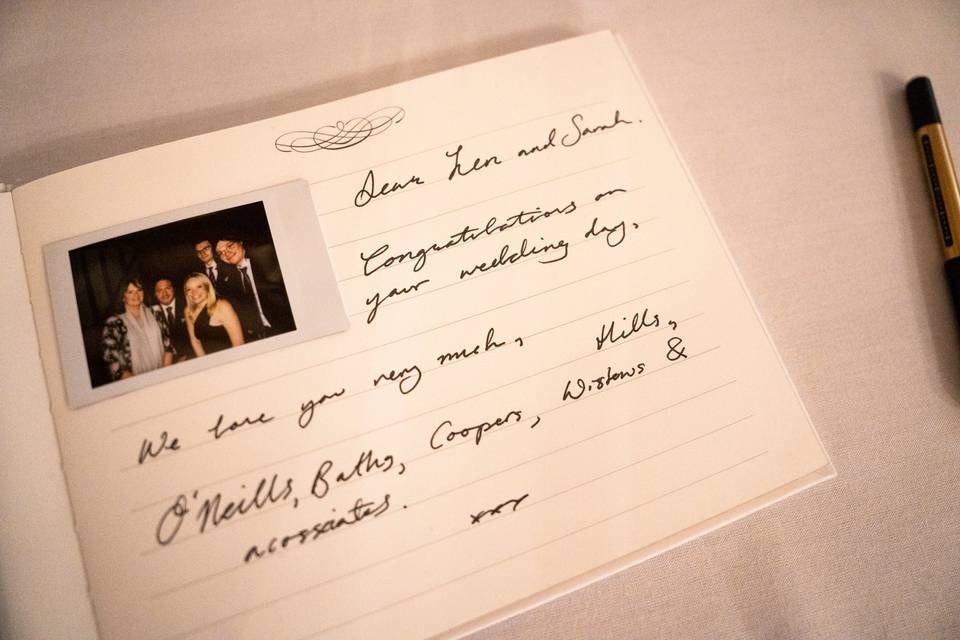 Dear Len and Sarah.
Congratulations on
your wedding day,
We love you very much, Hills,
O'Neills, Baths, Coopers, Wistows &
acossciates. xxx